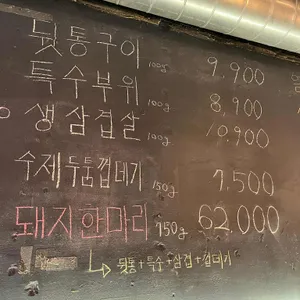 뒷통구이 100g 9,900
특수부위 100g 8,900
생삼겹살 100g 10,900
수제두툼껍데기 150g 7,500
돼지한마리 750g 62,000
뒷통+특수+삼겹+껍데기